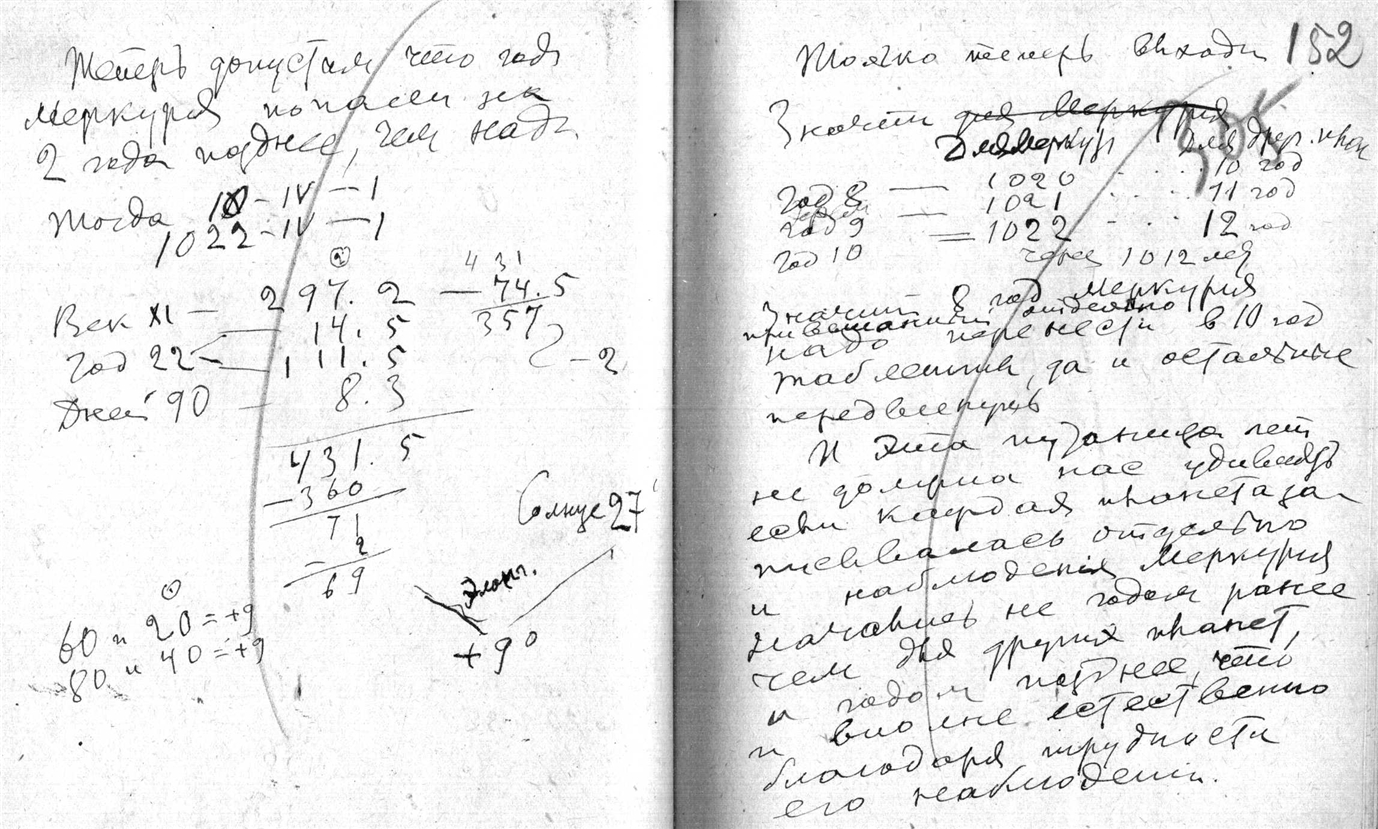 Теперь допустим что год
Меркурия попален на
2 года позднее, чем надо
Тогда 10 – IV – 1
1022 – IV – 1
Век XI – 297.2 – 74.5
431
357
14.5
Год 22 – 111.5
2 – 2
Дней 90 – 8.3
431.5
– 360
71
– 2
69
Солнце 27
Элонг.
+ 9°
60 и 20 = +9
80 и 40 = +9
152
Только теперь выходи
Значит для Меркурия
Для Меркур Для друг. план
год 8 — 1020 . . . 10 год
год 9 — 1021 . . . 11 год
год 10 = 1022 . . . 12 год
через 1012 лет
Значит 8 год Меркурия
отдельно
надо перенести в 10 год
таблички, да и остальные
передвинуть
И эта путаница лет
не должна нас удивлять
если каждая планета за-
писывалась отдельно
и наблюдения Меркурия
начались не годом ранее
чем для других планет,
а годом позднее, что
и вполне естественно
благодаря трудности
его наблюдений.